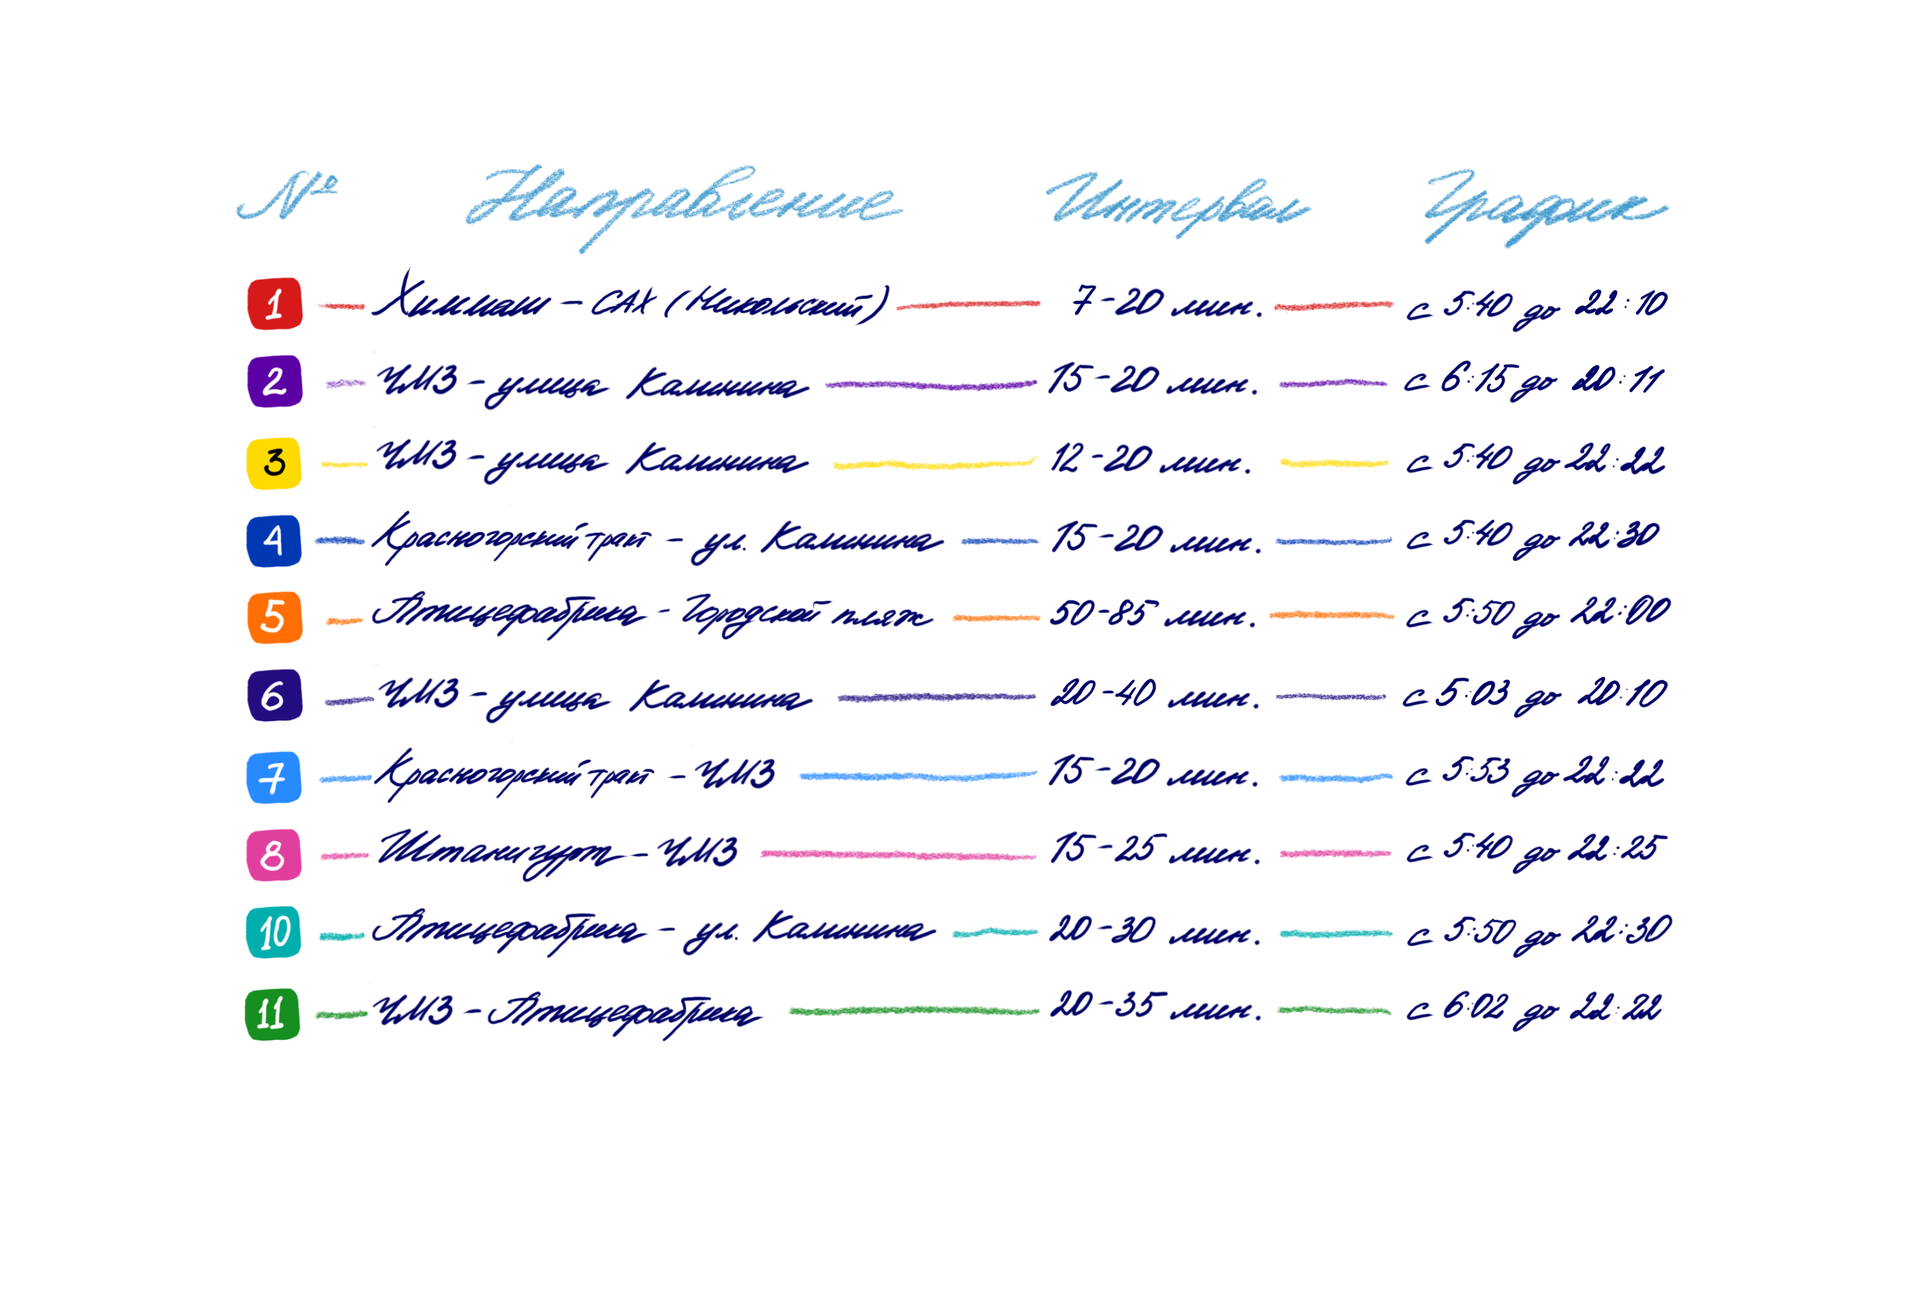 № Направление Интервал График
1 Химмаш - САХ (Никольский) 7-20 мин. с 5:40 до 22:10
2 ЧМЗ - улица Калинина 15-20 мин. с 6:15 до 20:11
3 ЧМЗ - улица Калинина 12-20 мин. с 5:40 до 22:22
4 Красногорский тракт - ул. Калинина 15-20 мин. с 5:40 до 22:30
5 Птицефабрика - Городской пляж 50-85 мин. с 5:50 до 22:00
6 ЧМЗ - улица Калинина 20-40 мин. с 5:03 до 20:10
7 Красногорский тракт - ЧМЗ 15-20 мин. с 5:53 до 22:22
8 Штанигурт - ЧМЗ 15-25 мин. с 5:40 до 22:25
10 Птицефабрика - ул. Калинина 20-30 мин. с 5:50 до 22:30
11 ЧМЗ - Птицефабрика 20-35 мин. с 6:02 до 22:22